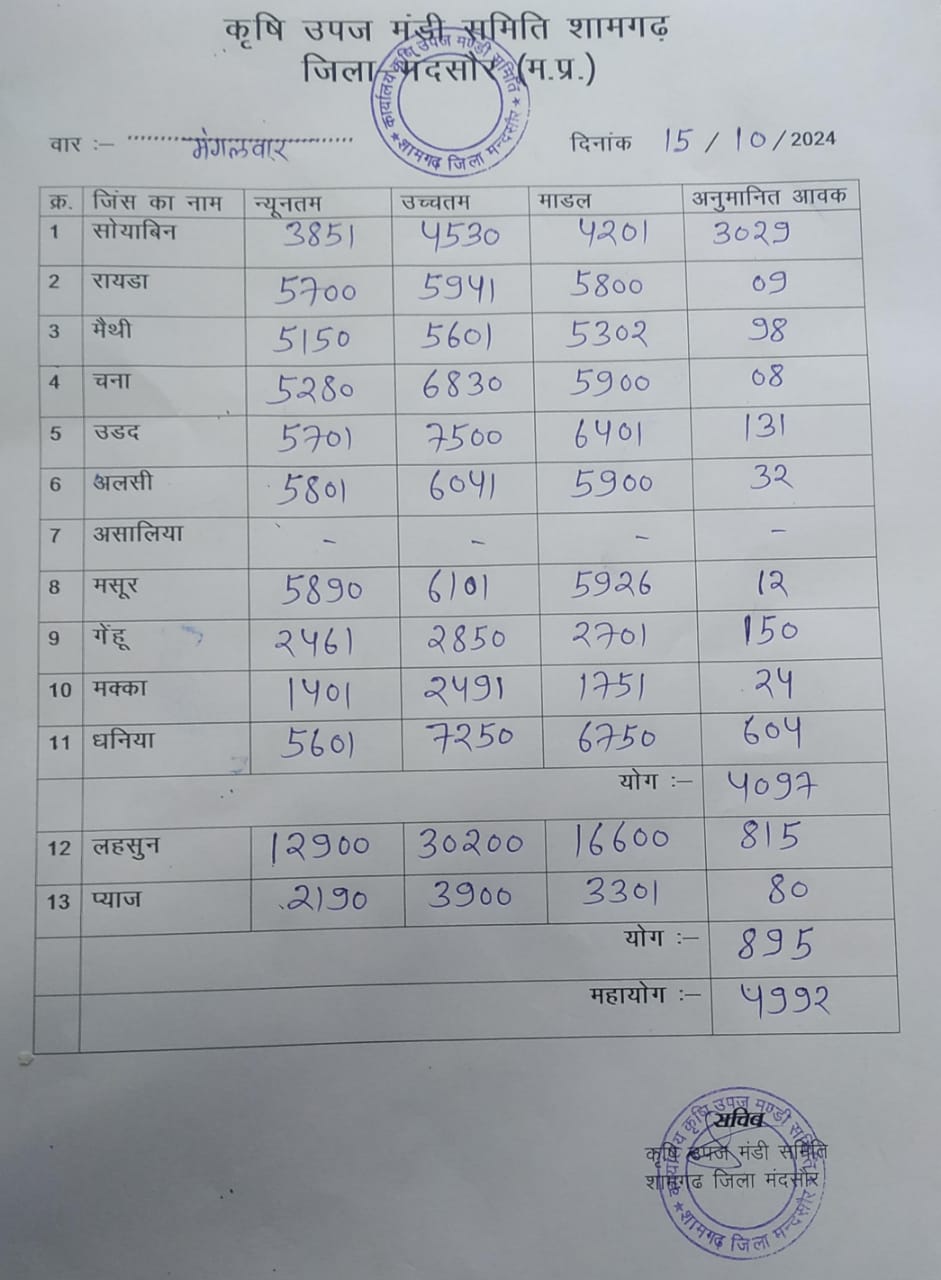 कृषि उपज मंडी समिति शामगढ़
जिला मंदसौर (म.प्र.)
कार्यालय कृषि उपज मण्डी समिति
शामगढ़ जिला मन्दसौर
वार :– मंगलवार दिनांक 15 / 10 / 2024
क्र. जिंस का नाम न्यूनतम उच्चतम माडल अनुमानित आवक
1 सोयाबिन 3851 4530 4201 3029
2 रायडा 5700 5941 5800 09
3 मैथी 5150 5601 5302 98
4 चना 5280 6830 5900 08
5 उडद 5701 7500 6401 131
6 अलसी 5801 6041 5900 32
7 असालिया - - - -
8 मसूर 5890 6101 5926 12
9 गेंहू 2461 2850 2701 150
10 मक्का 1401 2491 1751 24
11 धनिया 5601 7250 6750 604
योग :– 4097
12 लहसुन 12900 30200 16600 815
13 प्याज 2190 3900 3301 80
योग :– 895
महायोग :– 4992
सचिव
कृषि उपज मंडी समिति
शामगढ जिला मंदसौर
कार्यालय कृषि उपज मण्डी समिति
शामगढ़ जिला मन्दसौर